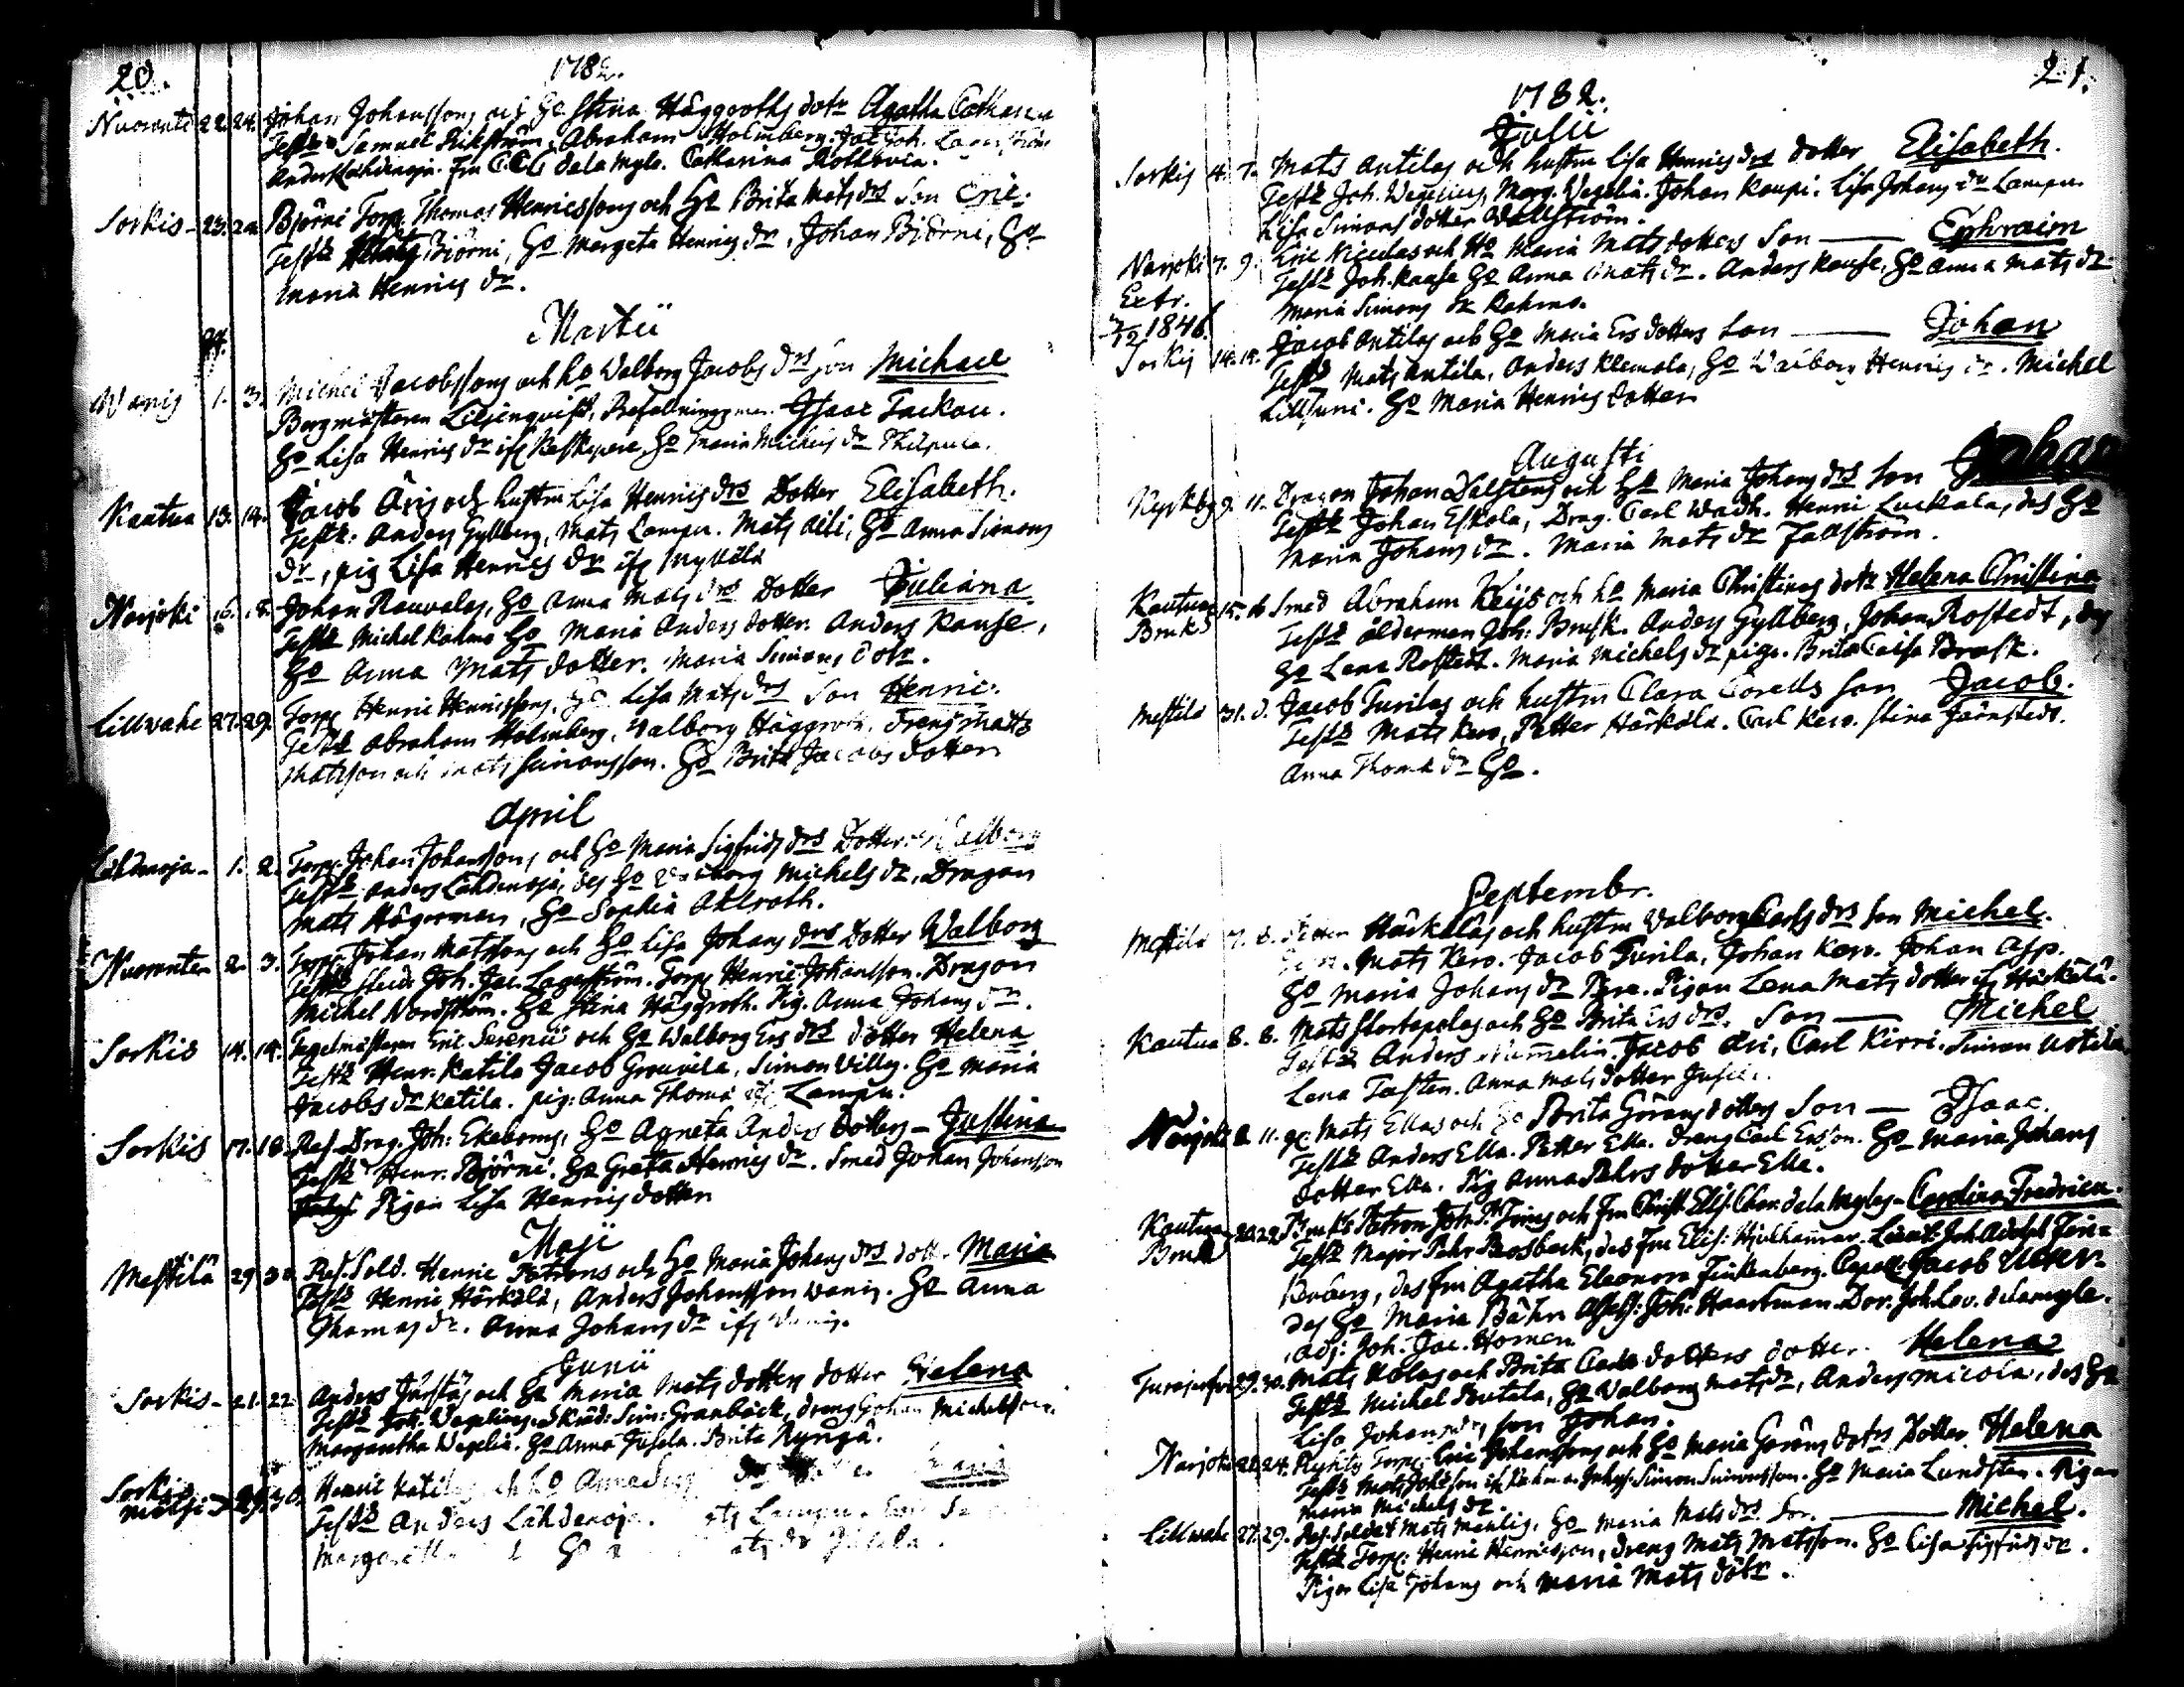 20.
1782.
Nuorante 22. 24. Johan Johanssons och Ho Stina Häggroths dotr Agatha Catharina
Testes Samuel Rikström, Abraham Holmberg. Joh.
Anders Lähdenoja. Fru de la Myle. Catharina
Sorkis - 23. 24. Björni Torp. Thomas Henricssons och Ho Brita Mats drs Son Eric.
Test: Björni, Ho Margeta Henrics dr, Johan Björni, Ho
Maria Henrics dr.
Martii
Wanis 1. 3. Michel Jacobssons och ho Walborg Jacobs drs son Michael
Borgmästaren Liljenquist, Befallningsman Isaac Tackou.
Ho Lisa Henrics dr ifr Ho Maria Michels dr
Kautua 13. 14. Jacob Äris och hustru Lisa Henrics drs Dotter Elisabeth.
Test: Anders Gyllberg, Mats Lampu. Mats Aili, Ho Anna Simons
dr, pig Lisa Henrics dr ifr
Narjoki 16. Johan Rauvalas, Ho Anna Mats drs Dotter Juliana.
Test: Michel Rahmo Ho Maria Anders dotter. Anders Kause,
Ho Anna Mats dotter. Maria Simons dotr.
Lillwahe 27. 29. Torp. Henric Henricssons, Ho Lisa Mats drs Son Henric.
Test: Abraham Holmberg, Walborg Häggroth, Dreng Matts
Matsson och Mats Simonsson. Ho Brita Jacobs dotter
April
Lähdenoja - 1. 2. Torp. Johan Johanssons och Ho Maria Sigfrids drs Dotter Walborg
Test: Anders Lähdenoja, des Ho Walborg Michels dr, Dragon
Mats Högerman, Ho Sophia Ahlroth.
Nuorante 2. 3. Torp. Johan Matssons och Ho Lisa Johans drs Dotter Walborg
Test: Stud. Joh. Jac. Lagerström. Torp. Henric Johansson. Dragon
Michel Nordström. Ho Stina Häggroth. Pig. Anna Johans dr.
Sorkis 14. 14. Tegelmästaren Eric Serenii och Ho Walborg Ers drs dotter Helena
Test: Henr. Katila Jacob Grouvila, Simon Villg. Ho Maria
Jacobs dr Katila. pig: Anna Thomä Lampu.
Sorkis 17. 18. Ref. Drag. Joh: Ekeboms, Ho Agneta Anders Dotters - Justina
Test: Henr. Björni. Ho Greta Henrics dr. Smed Johan Johansson
Pigan Lisa Henrics dotter
Maji
Mestilä 29. 30. Ref. Sold. Henric Patrons och Ho Maria Johans drs dott. Maria
Test: Henric Härkälä, Anders Johansson Wanis. Ho Anna
Thomas dr. Anna Johans dr ifr Wanis.
Junii
Sorkis - 21. 22. Anders Järstäs och Ho Maria Mats dotters dotter Helena
Test: Joh. Wegelius. Skräd: Sim: Granbäck, dreng Johan Michelsson.
Margaretha Wegelia. Ho Anna Jusela. Brita Kyngä.
Sorkis 29. 30. Henric Katilas och Ho Anna
Test: Anders Lähdenoja. Lampu.
Ho
21.
1782.
Julii
Sorkis 4. 7. Mats Antilas och hustru Lisa Henrics drs dotter Elisabeth.
Test: Joh. Wegelius, Marg. Wegelia. Johan Kaupi. Lisa Johans dr Lampu.
Lisa Simons dotter Wallström.
Narjoki 7. 9. Eric Nicculas och Ho Maria Mats dotters Son — Ephraim
Test: Joh. Kause Ho Anna Mats dr. Anders Kause, Ho Anna Mats dr
Maria Simons dr Rahmo.
Extr.
7/12 1846.
Sorkis 14. 14. Jacob Antilas och Ho Maria Ers dotters Son — Johan
Test: Mats Antila, Anders Klemola, Ho Walborg Henrics dr. Michel
Lillsuni. Ho Maria Henrics dotter
Augusti
Kyrkby 9. 11. Dragon Johan Dalstens och Ho Maria Johans drs Son Johan
Test: Johan Eskola, Drag. Carl Wadh. Henric Luckala, des Ho
Maria Johans dr. Maria Mats dr Fallström.
Kautua Bruk 15. 16 Smed Abraham Keijs och ho Maria Christina dotr Helena Christina
Test: ålderman Joh: Brusk. Anders Gyllberg, Johan Rostedt, des
Ho Lena Rostedt. Maria Michels dr piga. Brita Caisa Brask.
Mestilä 31. d. Jacob Turilas och hustru Clara Corells son Jacob.
Test: Mats Kero, Petter Härkälä. Carl Kero. Stina Järnstedt.
Anna Thomä dr Ho.
Septembr.
Mestilä 7. 8. Petter Härkäläs och hustru Walborg Carls drs son Michel.
Mats Kero. Jacob Turila, Johan Kero. Johan Asp.
Ho Maria Johans dr Pigan Lena Mats dotter ifr Härkälä.
Kautua 8. 8. Mats Stortapolas och Ho Brita Ers drs. Son — Michel
Test: Anders Nummelin. Jacob Äri, Carl Kirri. Simon Uotila
Lena Tasten. Anna Mats dotter
Narjoki 8 11. Mats Ellas och Ho Brita Görans dotters Son — Isaac.
Test: Anders Ella. Petter Ella. Dreng Carl Ersson. Ho Maria Johans
dotter Ella. Pig Anna Pehrs dotter Ella.
Kautua Bruk 20. 22. Bruks Patron Joh. och Fru Christ. Elis. Char. de la Myles - Carolina Fredrica.
Test: Major Pehr Rosback, des Fru Elis: Hjulhammar. Lieut: Joh. Adolph
des Fru Agatha Eleonora Finkenberg. Capell: Jacob
des Ho Maria Bähr. Assess: Joh: Haartman. Dor: Joh. Lov. delamyle.
Adj: Joh. Jac. Homen
29. 30. Mats Holas och Brita Carls dotters dotter. Helena
Test: Michel Butala, Ho Walborg Mats dr, Anders Micola, des Ho
Lisa Johans dr, son Johan.
Narjoki 22. 24. Eric Johanssons och Ho Maria Görans dotrs Dotter Helena
Test: Simon Simonsson. Ho Maria Lundsten. Pigan
Maria Michels dr.
Lillwahe 27. 29. Ref. Soldat Mats Manlig, Ho Maria Mats drs Son. — Michel.
Test: Torp: Henric Henricsson, dreng Mats Matsson. Ho Lisa Sigfrids dr.
Pigor Lisa Johans och Maria Mats dotr.